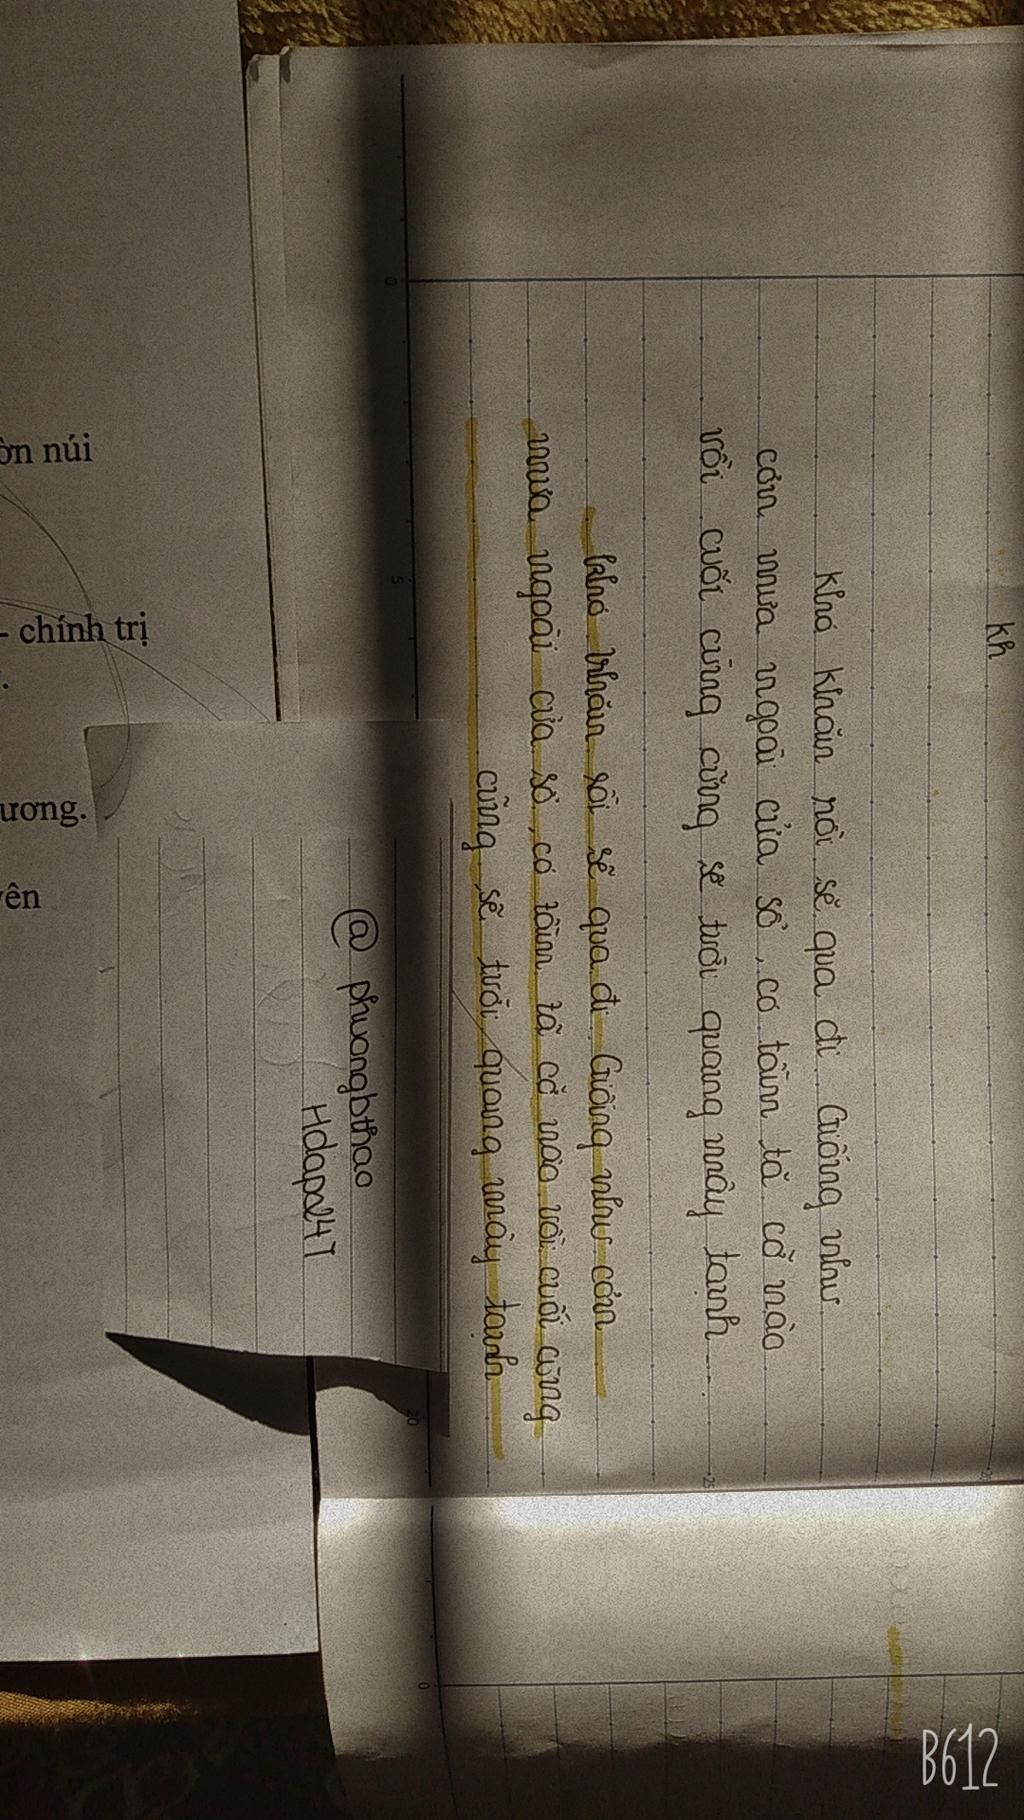 kh
khó khăn rồi sẽ qua đi. Giống như
cơn mưa ngoài cửa sổ, có tầm tã cỡ nào
rồi cuối cùng cũng sẽ trời quang mây tạnh....
khó khăn rồi sẽ qua đi. Giống như cơn
mưa ngoài cửa sổ, có tầm tã cỡ nào rồi cuối cùng
cũng sẽ trời quang mây tạnh
@ phuongbthao
ờn núi
- chính trị
ương.
0
5
20
25
0
B612